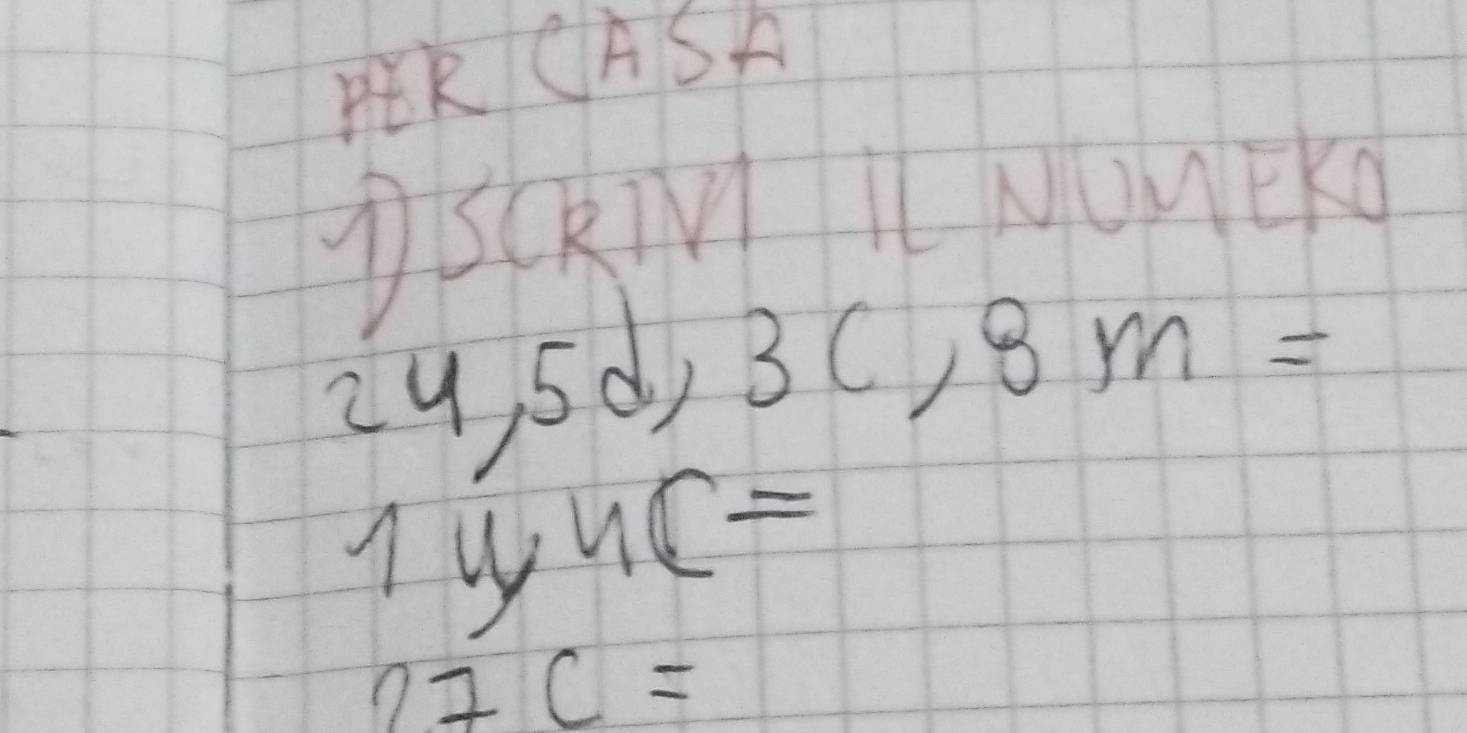 PER CASA
1) SCRIVI IL NUMERO
2u, 5d, 3C, 8m =
1u, 4C =
27C =